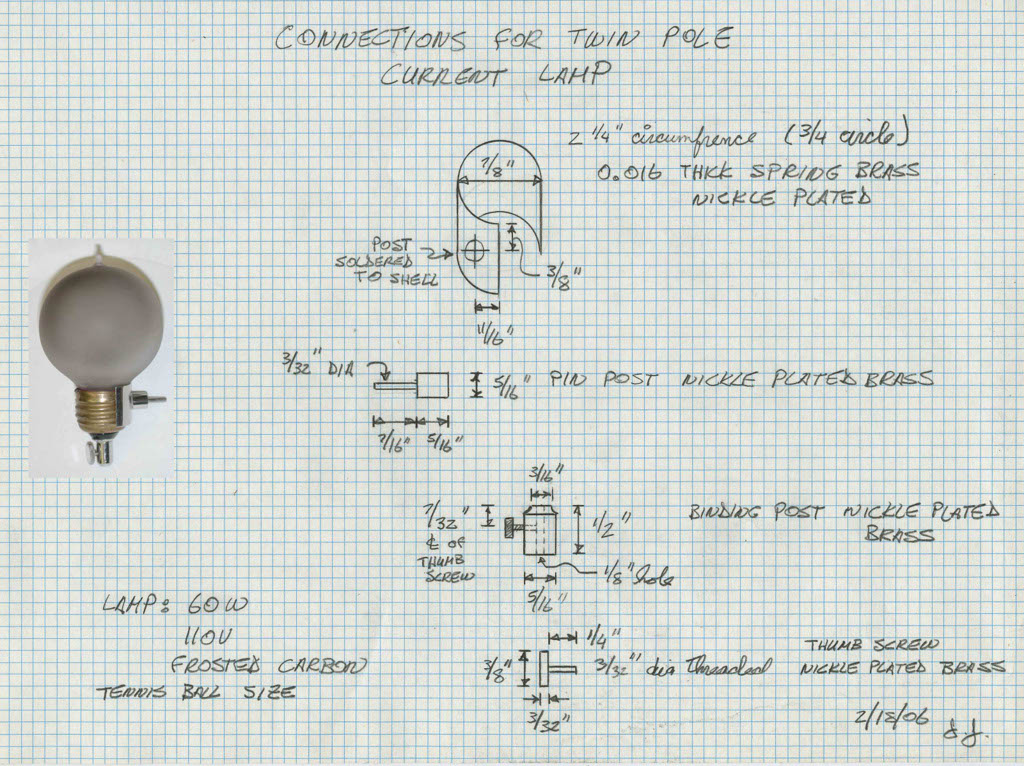 CONNECTIONS FOR TWIN POLE
CURRENT LAMP
2 1/4" circumfrence (3/4 circle)
0.016 THCK SPRING BRASS
NICKLE PLATED
7/8"
POST
SOLDERED
TO SHELL
3/8"
11/16"
3/32" DIA
5/16"
PIN POST NICKLE PLATED BRASS
7/16"
5/16"
3/16"
7/32"
℄ OF
THUMB
SCREW
1/2"
BINDING POST NICKLE PLATED
BRASS
1/8" hole
5/16"
LAMP: 60W
110V
FROSTED CARBON
TENNIS BALL SIZE
1/4"
3/8"
3/32" dia Threaded
THUMB SCREW
NICKLE PLATED BRASS
3/32"
2/18/06